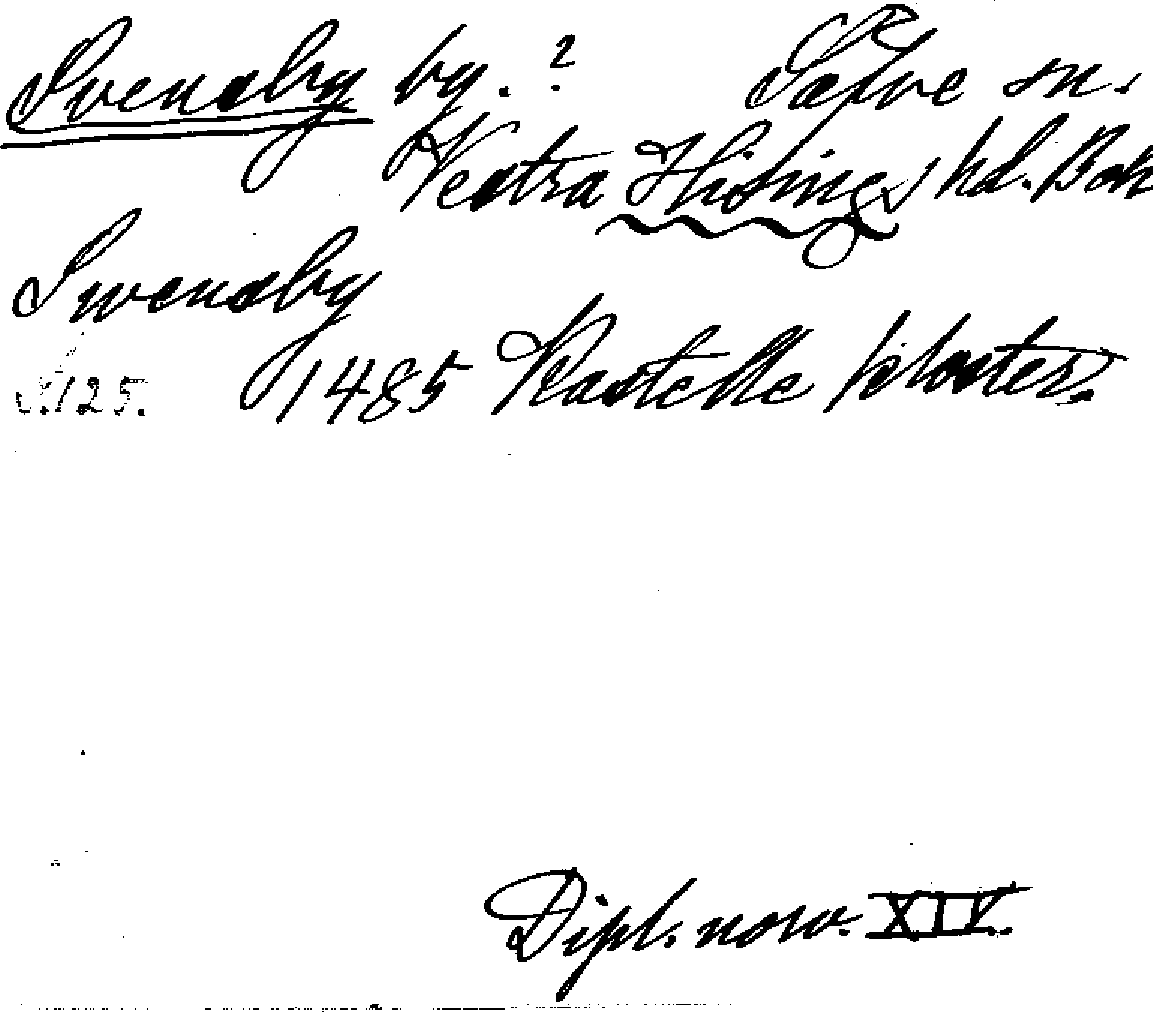 Svensby by. ? Säfve sn.
Vestra Hisings hd. Boh
Swensby
S. 125. 1485 Kastelle kloster.
Dipl. norv. XIV.